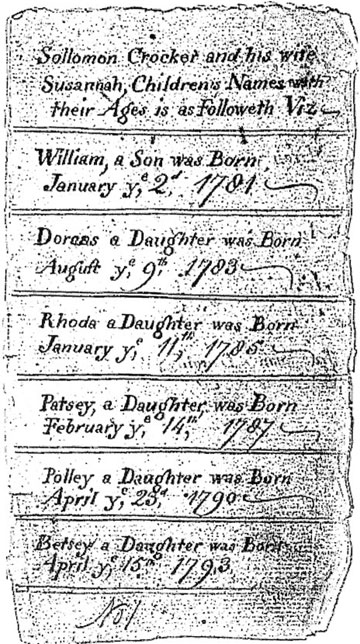 Sollomon Crocker and his wife
Susannah, Children's Names with
their Ages is as Followeth Viz
William, a Son was Born
January yᵉ 2ᵈ, 1781
Dorcas a Daughter was Born
August yᵉ 9ᵗʰ, 1783
Rhoda a Daughter was Born
January yᵉ 11ᵗʰ, 1785
Patsey, a Daughter, was Born
February yᵉ 14ᵗʰ, 1787
Polley a Daughter was Born
April yᵉ 23ᵈ, 1790
Betsey a Daughter was Born
April yᵉ 15ᵗʰ 1793
No 1